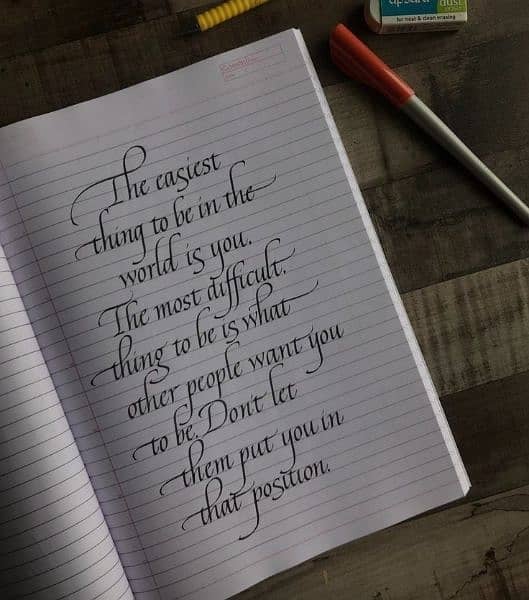 The easiest
thing to be in the
world is you.
The most difficult
thing to be is what
other people want you
to be. Don't let
them put you in
that position.
for neat & clean erasing